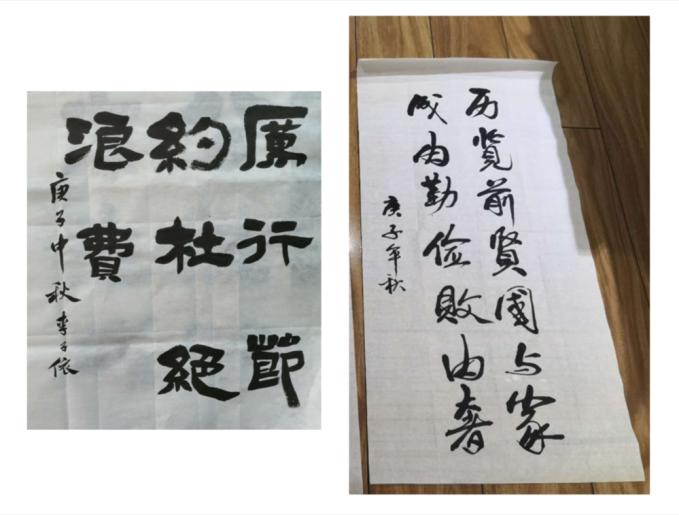 厲行節
約杜絕
浪費
庚子中秋李子依
历览前贤國与家
成由勤俭敗由奢
庚子年秋